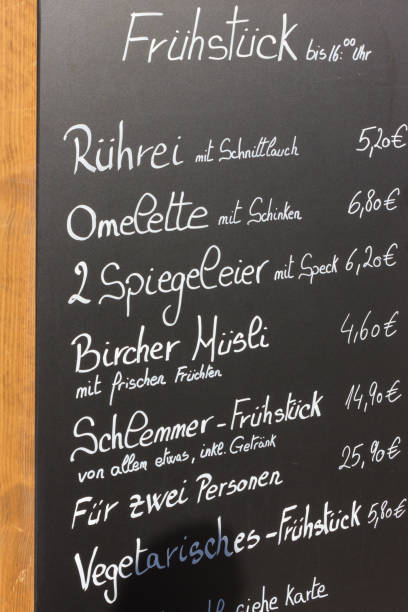 Frühstück bis 16:00 Uhr
Rührei mit Schnittlauch 5,20€
Omelette mit Schinken 6,80€
2 Spiegeleier mit Speck 6,20€
Bircher Müsli 4,60€
mit frischen Früchten
Schlemmer-Frühstück 14,90€
von allem etwas, inkl. Getränk
Für zwei Personen 25,90€
Vegetarisches-Frühstück 5,80€
siehe Karte